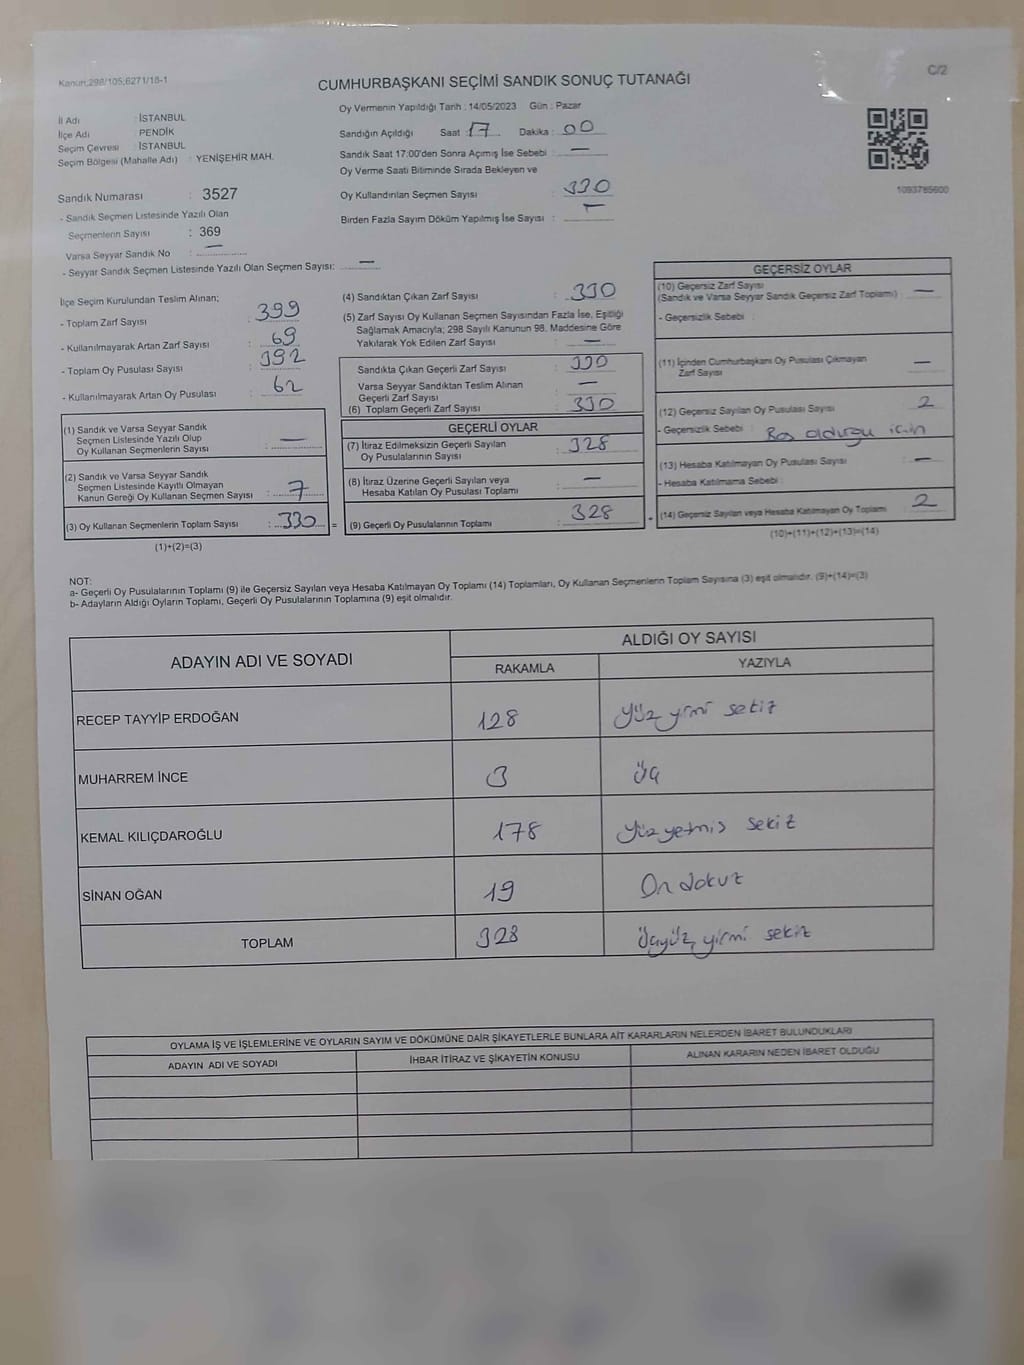 Kanun;298/105;6271/18-1
C/2
CUMHURBAŞKANI SEÇİMİ SANDIK SONUÇ TUTANAĞI
İl Adı : İSTANBUL
İlçe Adı : PENDİK
Seçim Çevresi : İSTANBUL
Seçim Bölgesi (Mahalle Adı) : YENİŞEHİR MAH.
Sandık Numarası : 3527
- Sandık Seçmen Listesinde Yazılı Olan
Seçmenlerin Sayısı : 369
Varsa Seyyar Sandık No : —
- Seyyar Sandık Seçmen Listesinde Yazılı Olan Seçmen Sayısı: —
Oy Vermenin Yapıldığı Tarih : 14/05/2023 Gün : Pazar
Sandığın Açıldığı Saat : 17 Dakika : 00
Sandık Saat 17:00'den Sonra Açımış İse Sebebi : —
Oy Verme Saati Bitiminde Sırada Bekleyen ve
Oy Kullandırılan Seçmen Sayısı : 330
Birden Fazla Sayım Döküm Yapılmış İse Sayısı : —
1093785600
İlçe Seçim Kurulundan Teslim Alınan;
- Toplam Zarf Sayısı : 399
- Kullanılmayarak Artan Zarf Sayısı : 69
- Toplam Oy Pusulası Sayısı : 392
- Kullanılmayarak Artan Oy Pusulası : 62
(1) Sandık ve Varsa Seyyar Sandık
Seçmen Listesinde Yazılı Olup
Oy Kullanan Seçmenlerin Sayısı : —
(2) Sandık ve Varsa Seyyar Sandık
Seçmen Listesinde Kayıtlı Olmayan
Kanun Gereği Oy Kullanan Seçmen Sayısı : 7
(3) Oy Kullanan Seçmenlerin Toplam Sayısı : 330 =
(1)+(2)=(3)
(4) Sandıktan Çıkan Zarf Sayısı : 330
(5) Zarf Sayısı Oy Kullanan Seçmen Sayısından Fazla İse, Eşitliği
Sağlamak Amacıyla; 298 Sayılı Kanunun 98. Maddesine Göre
Yakılarak Yok Edilen Zarf Sayısı : —
Sandıkta Çıkan Geçerli Zarf Sayısı : 330
Varsa Seyyar Sandıktan Teslim Alınan
Geçerli Zarf Sayısı : —
(6) Toplam Geçerli Zarf Sayısı : 330
GEÇERLİ OYLAR
(7) İtiraz Edilmeksizin Geçerli Sayılan
Oy Pusulalarının Sayısı : 328
(8) İtiraz Üzerine Geçerli Sayılan veya
Hesaba Katılan Oy Pusulası Toplamı : —
(9) Geçerli Oy Pusulalarının Toplamı : 328 +
GEÇERSİZ OYLAR
(10) Geçersiz Zarf Sayısı
(Sandık ve Varsa Seyyar Sandık Geçersiz Zarf Toplamı) : —
- Geçersizlik Sebebi :
(11) İçinden Cumhurbaşkanı Oy Pusulası Çıkmayan
Zarf Sayısı : —
(12) Geçersiz Sayılan Oy Pusulası Sayısı : 2
- Geçersizlik Sebebi : Boş olduğu için
(13) Hesaba Katılmayan Oy Pusulası Sayısı : —
- Hesaba Katılmama Sebebi :
(14) Geçersiz Sayılan veya Hesaba Katılmayan Oy Toplamı : 2
(10)+(11)+(12)+(13)=(14)
NOT:
a- Geçerli Oy Pusulalarının Toplamı (9) ile Geçersiz Sayılan veya Hesaba Katılmayan Oy Toplamı (14) Toplamları, Oy Kullanan Seçmenlerin Toplam Sayısına (3) eşit olmalıdır. (9)+(14)=(3)
b- Adayların Aldığı Oyların Toplamı, Geçerli Oy Pusulalarının Toplamına (9) eşit olmalıdır.
ADAYIN ADI VE SOYADI ALDIĞI OY SAYISI
RAKAMLA YAZIYLA
RECEP TAYYİP ERDOĞAN 128 Yüz yirmi sekiz
MUHARREM İNCE 3 üç
KEMAL KILIÇDAROĞLU 178 Yüz yetmis sekiz
SİNAN OĞAN 19 On dokuz
TOPLAM 328 üçyüz yirmi sekiz
OYLAMA İŞ VE İŞLEMLERİNE VE OYLARIN SAYIM VE DÖKÜMÜNE DAİR ŞİKAYETLERLE BUNLARA AİT KARARLARIN NELERDEN İBARET BULUNDUKLARI
ADAYIN ADI VE SOYADI İHBAR İTİRAZ VE ŞİKAYETİN KONUSU ALINAN KARARIN NEDEN İBARET OLDUĞU